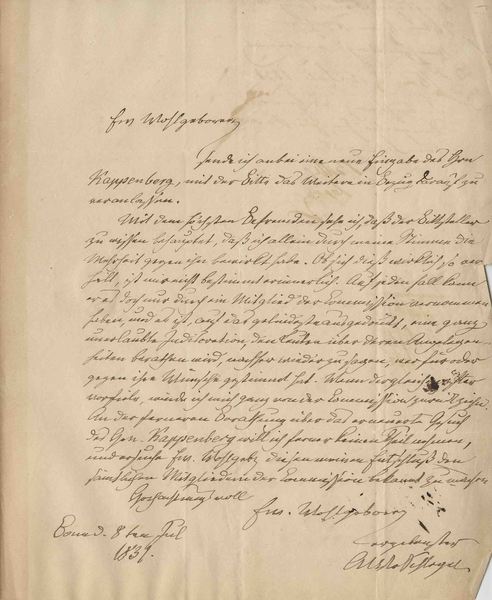 Ew. Wohlgeboren
sende ich anbei eine neue Eingabe des Hrn
Kappenberg, mit der Bitte das Weitere in Bezug darauf zu
veranlassen.
Mit dem höchsten Befremden sehe ich, daß der Bittsteller
zu wissen behauptet, daß ich allein durch meine Stimme die
Mehrheit gegen ihn bewirkt habe. Ob sich dieß wirklich so ver-
hält, ist mir nicht bestimmt erinnerlich. Auf jeden Fall kann
er es doch nur durch ein Mitglied der Commission vernommen
haben, und es ist, auf das gelindeste ausgedrückt, eine ganz
unerlaubte Indiscretion, den Leuten über deren Angelegen-
heiten berathen wird, nachher wieder zu sagen, wer für oder
gegen ihre Wünsche gestimmt hat. Wenn dergleichen öfter
vorfiele, würde ich mich ganz von der Commission zurückziehen.
An der ferneren Berathung über das erneuerte Gesuch
des Hrn. Kappenberg will ich ferner keinen Theil nehmen,
und ersuche Ew. Wohlgeb. diesen meinen Entschluß den
sämtlichen Mitgliedern der Commission bekannt zu machen
Hochachtungsvoll
Ew. Wohlgeboren
Bonn d. 8ten Jul
1839.
ergebenster
AWvSchlegel